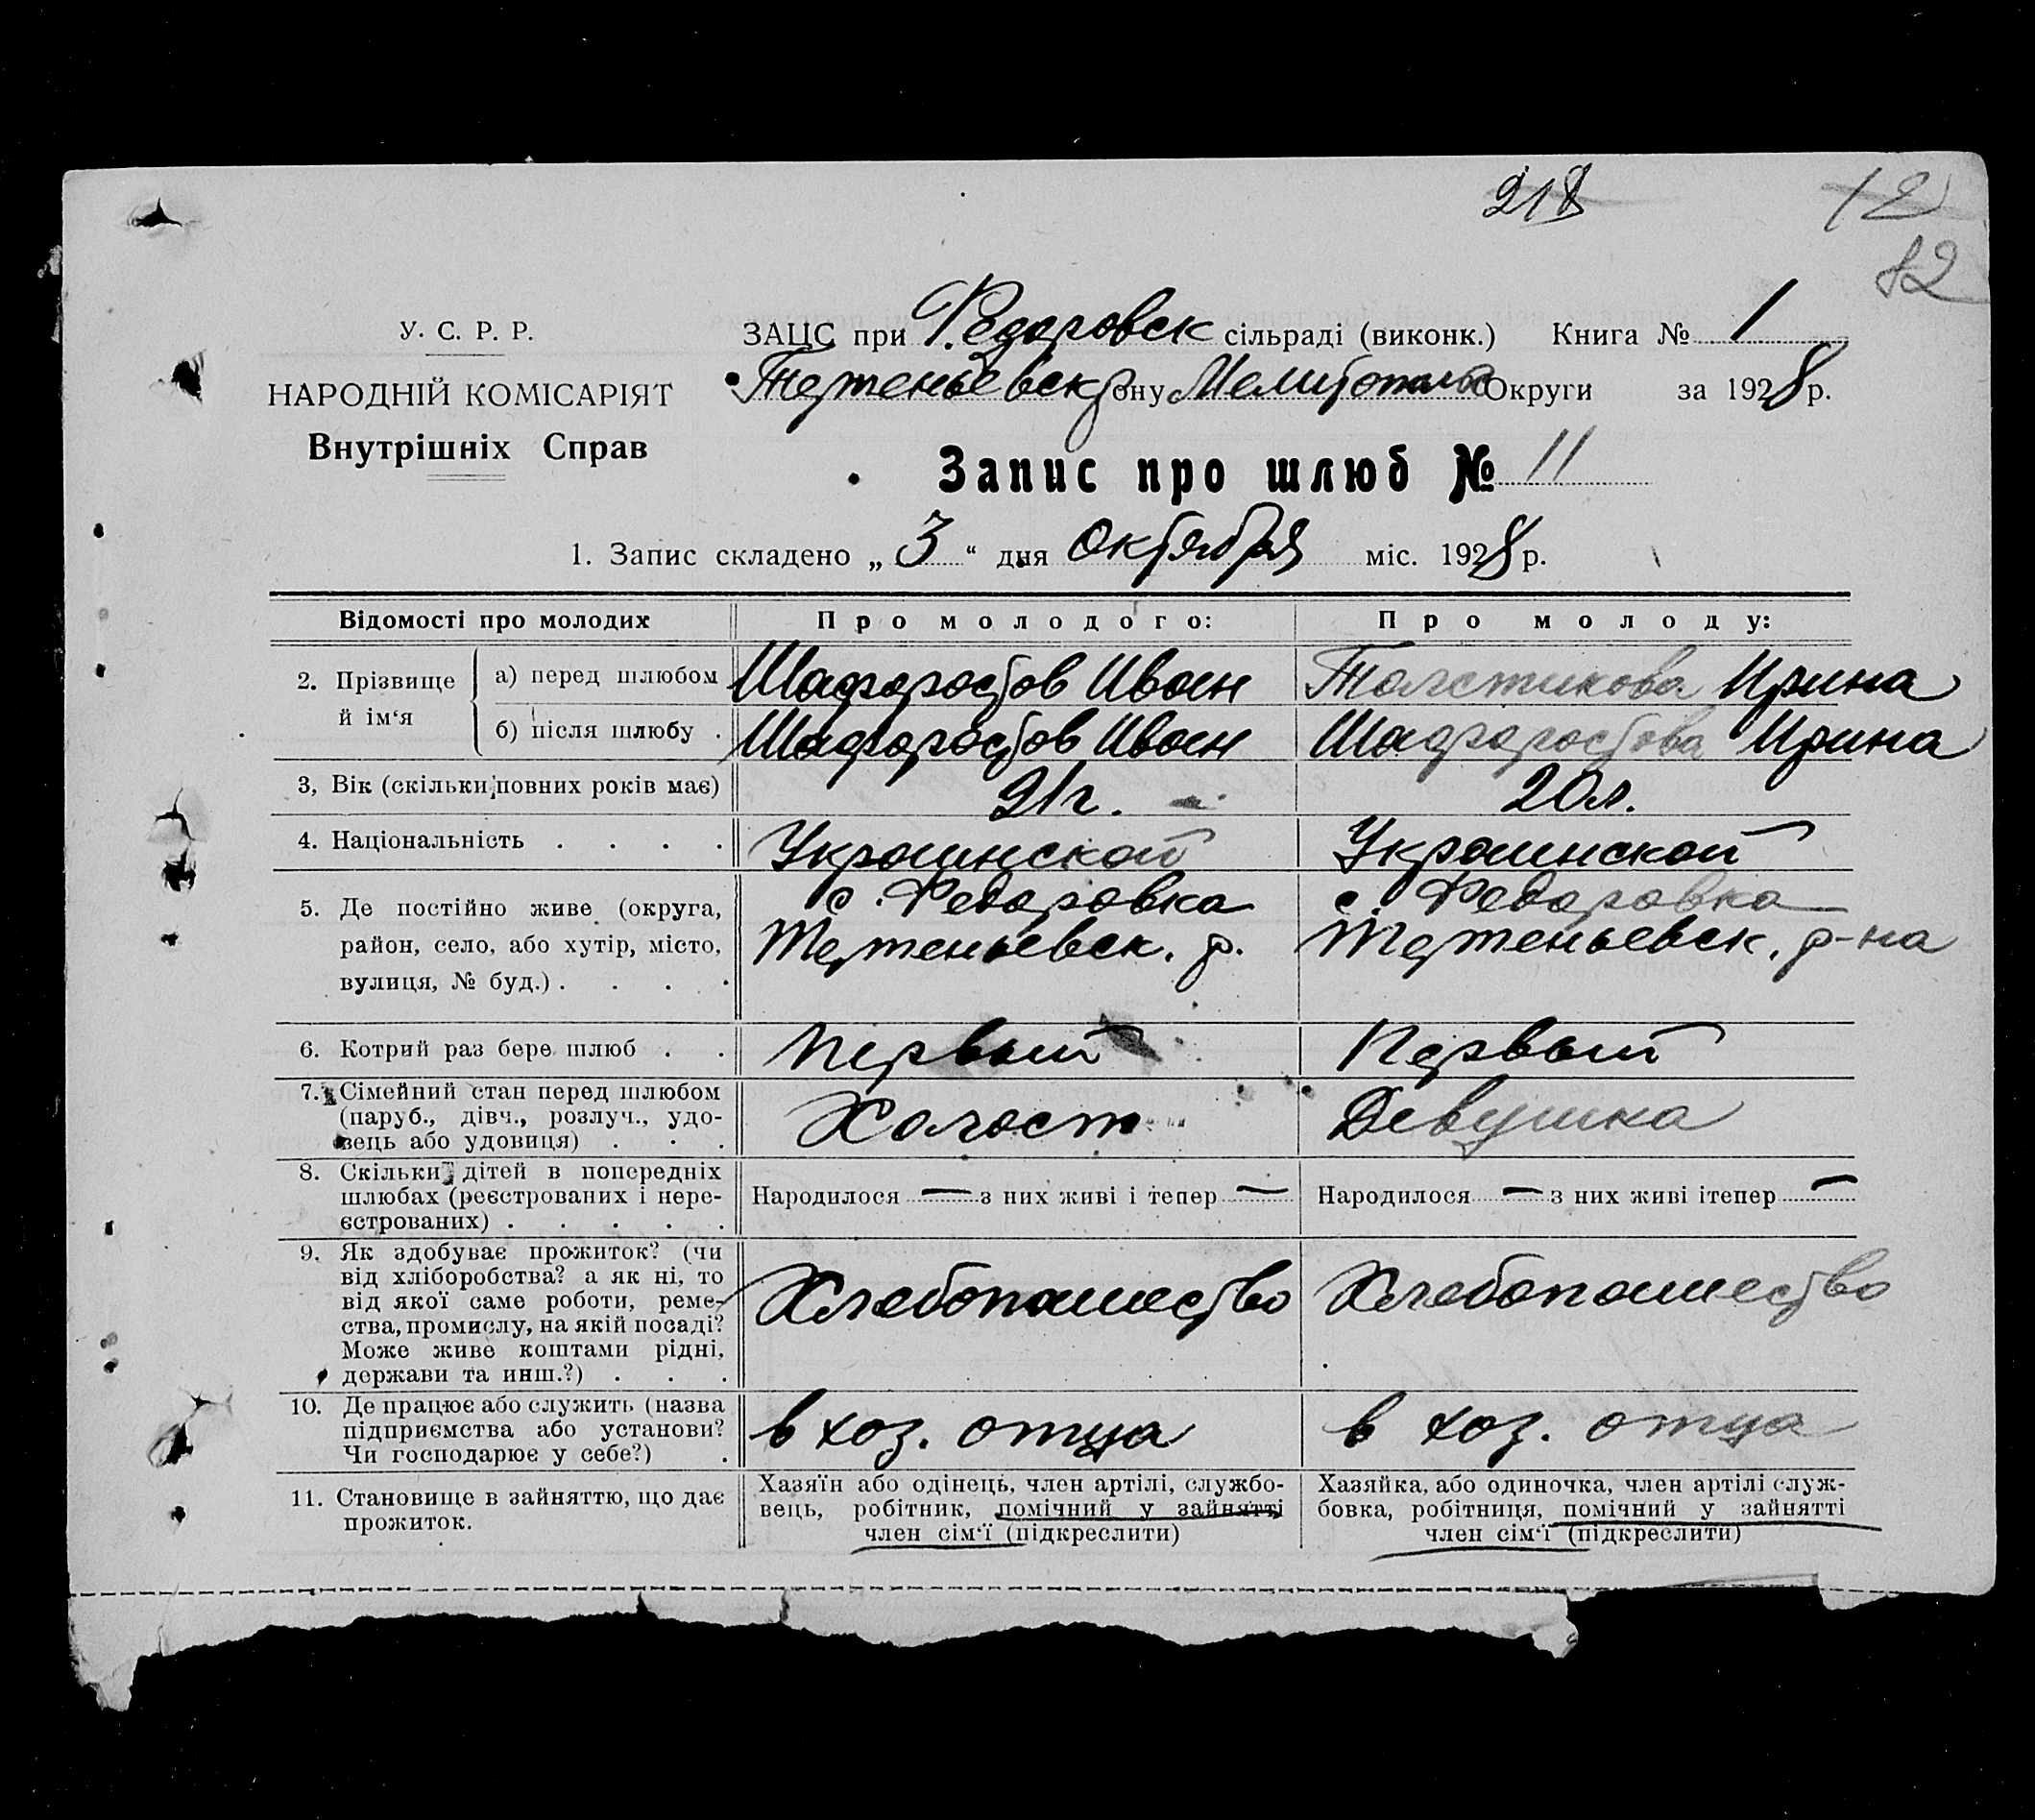 218
12
12
У. С. Р. Р.
НАРОДНІЙ КОМІСАРІЯТ
Внутрішніх Справ
ЗАЦС при Федоровск сільраді (виконк.) Книга № 1
Терпеньевск р ону Мелитопол Округи за 1928 р.
Запис про шлюб № 11
1. Запис складено „ 3 “ дня Октября міс. 1928 р.
Відомості про молодих Про молодого: Про молоду:
2. Прізвище й ім‘я
а) перед шлюбом Шафоростов Иван Толстикова Ирина
б) після шлюбу . Шафоростов Иван Шафоростова Ирина
3, Вік (скільки повних років має) 21 г. 20 л.
4. Національність . . . . Украинской Украинской
5. Де постійно живе (округа, район, село, або хутір, місто, вулиця, № буд.) . . . .
с. Федоровка с. Федоровка
Терпеньевск. р. Терпеньевск. р-на
6. Котрий раз бере шлюб . . Первый Первый
7. Сімейний стан перед шлюбом
(паруб., дівч., розлуч., удо-
вець або удовиця) . . . Холост Девушка
8. Скільки дітей в попередніх
шлюбах (реєстрованих і нере-
єстрованих) . . . . .
Народилося — з них живі і тепер — Народилося — з них живі ітепер —
9. Як здобуває прожиток? (чи
від хліборобства? а як ні, то
від якої саме роботи, реме-
ства, промислу, на якій посаді?
Може живе коштами рідні,
держави та инш.?) . . .
Хлебопашество Хлебопашество
10. Де працює або служить (назва
підприємства або установи?
Чи господарює у себе?) .
в хоз. отца в хоз. отца
11. Становище в зайняттю, що дає
прожиток.
Хазяїн або одінець, член артілі, службо-
вець, робітник, помічний у зайнятті
член сім‘ї (підкреслити)
Хазяйка, або одиночка, член артілі служ-
бовка, робітниця, помічний у зайнятті
член сім‘ї (підкреслити)